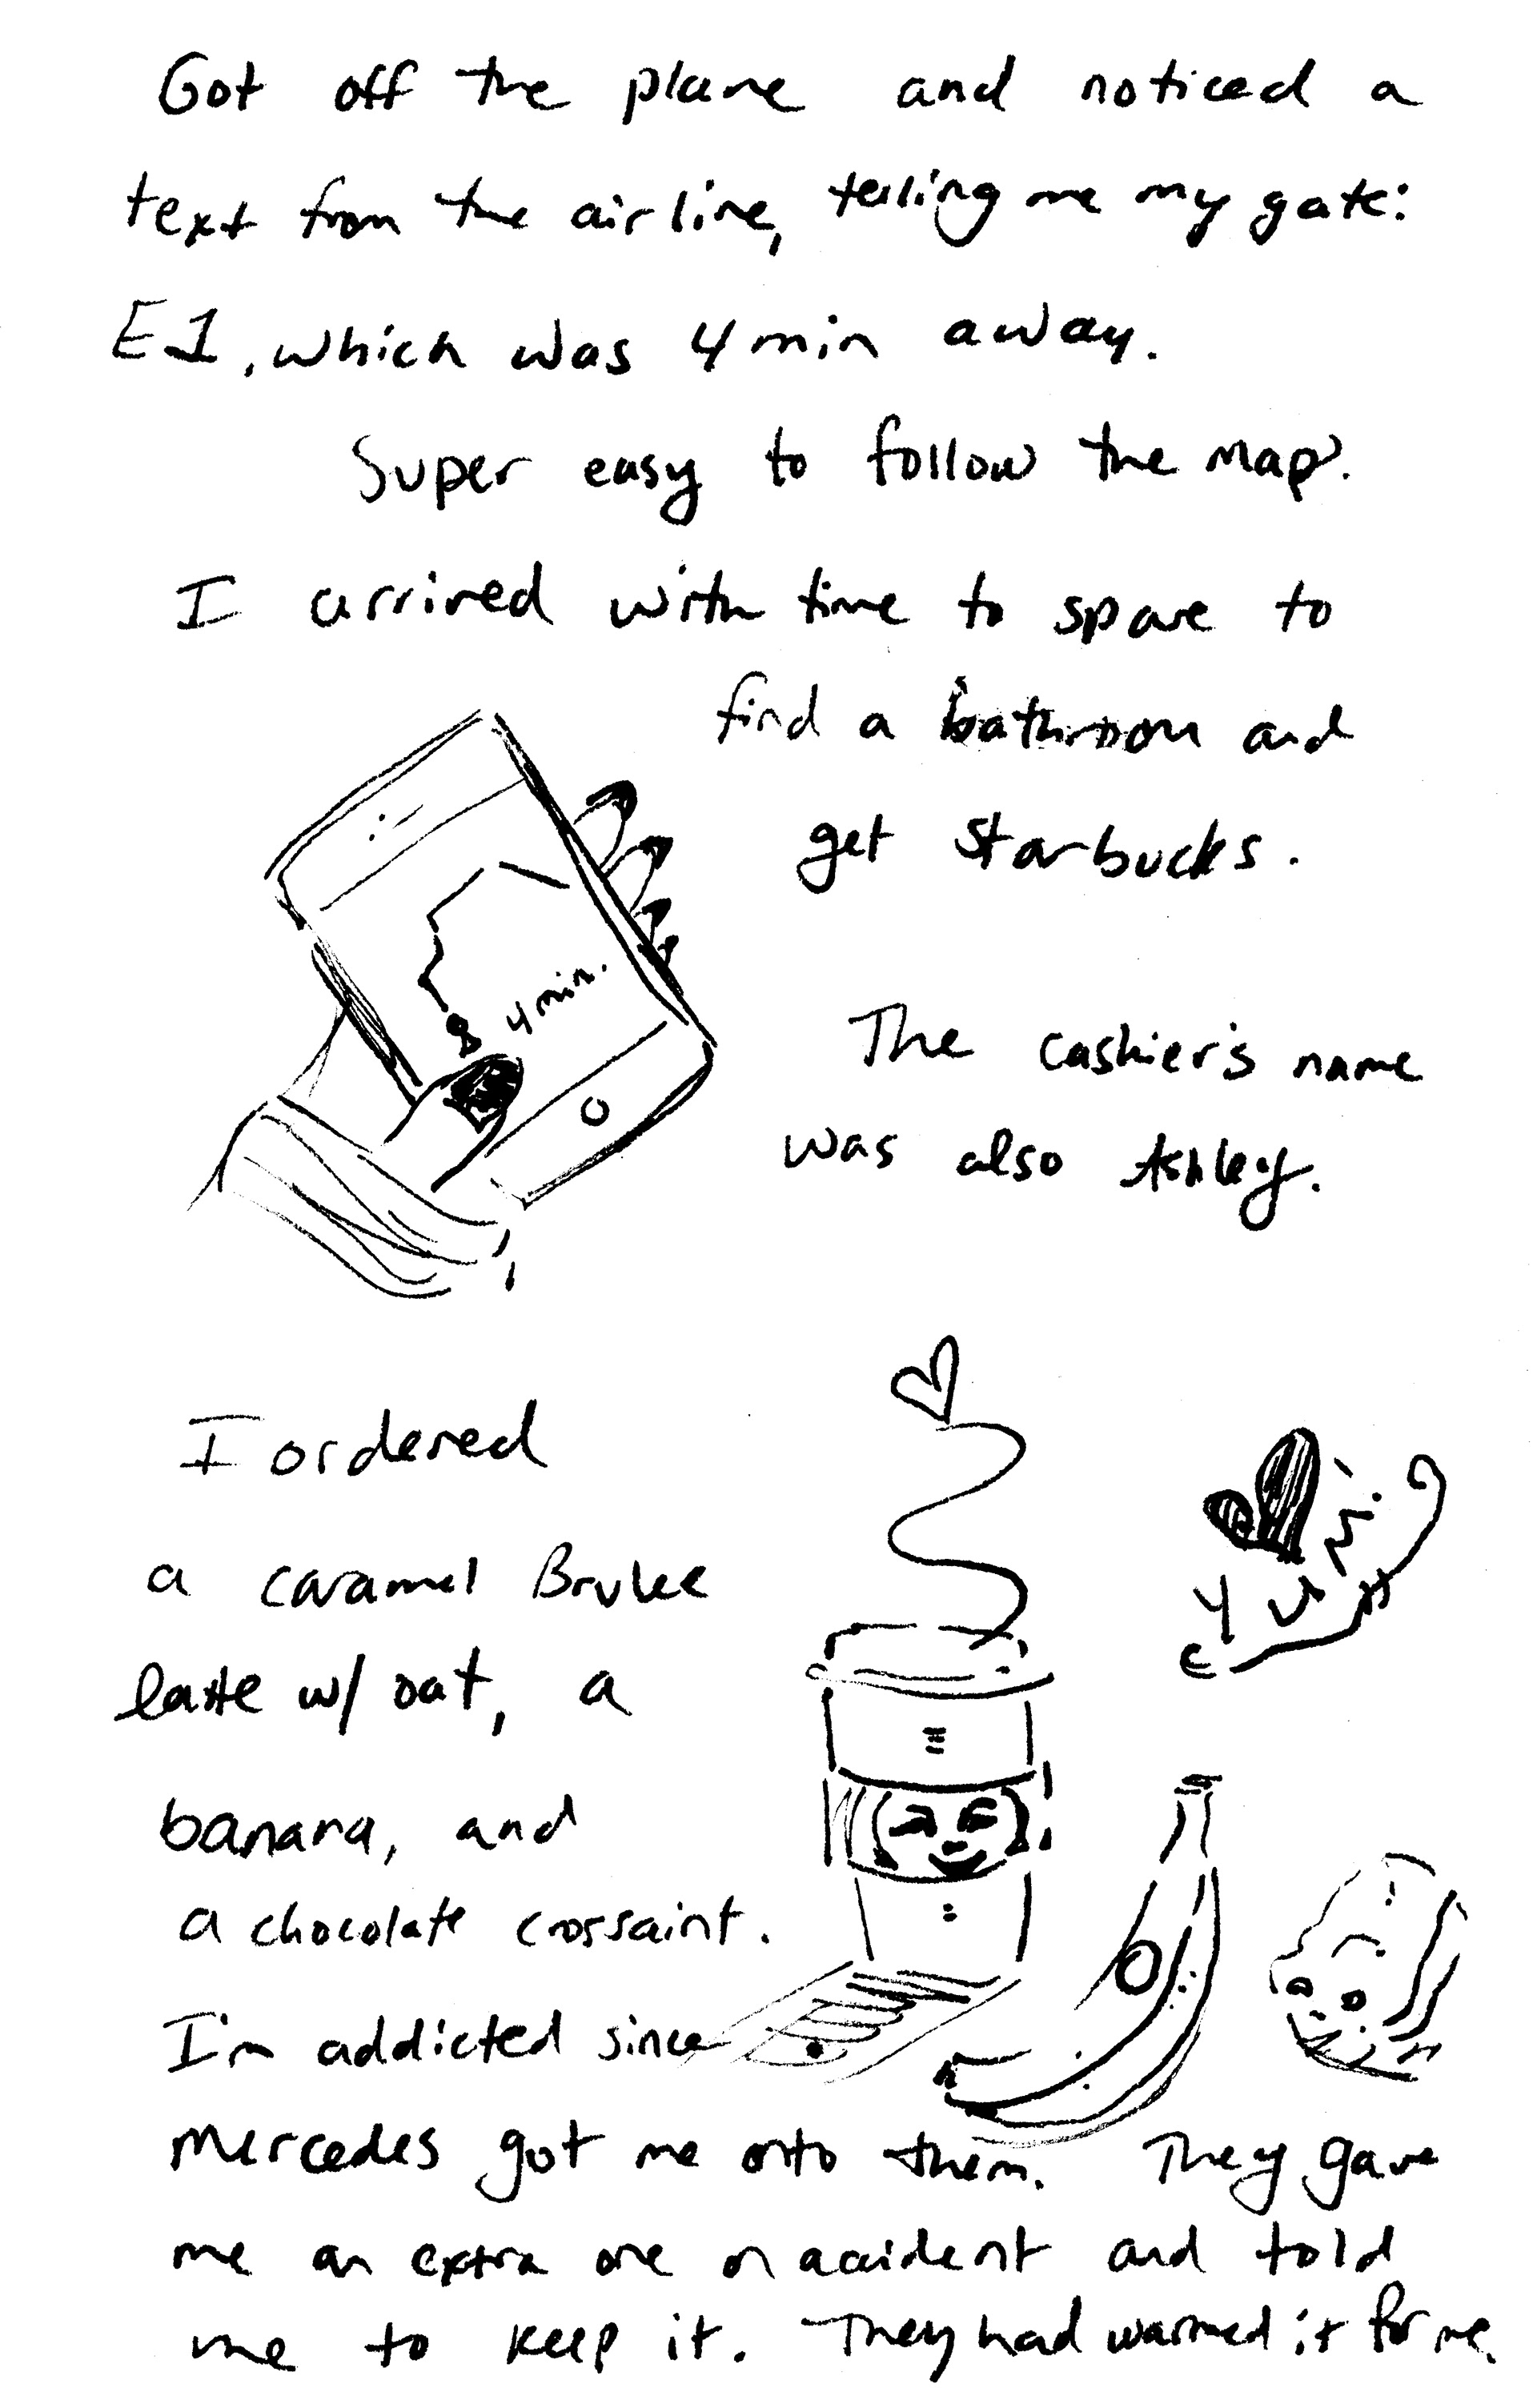 Got off the plane and noticed a
text from the airline, telling me my gate:
E1, which was 4 min away.
Super easy to follow the map.
I arrived with time to spare to
find a bathroom and
get Starbucks.
4 min.
The cashier's name
was also Ashley.
I ordered
a caramel Brulee
latte w/ oat, a
banana, and
a chocolate crossaint.
I'm addicted since
Mercedes got me onto them. They gave
me an extra one on accident and told
me to keep it. They had warmed it for me.